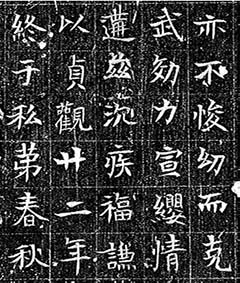 亦不悛幼而克
武効力宣纓情
遘茲沉疾福謙
以貞觀廿二年
終于私第春秋